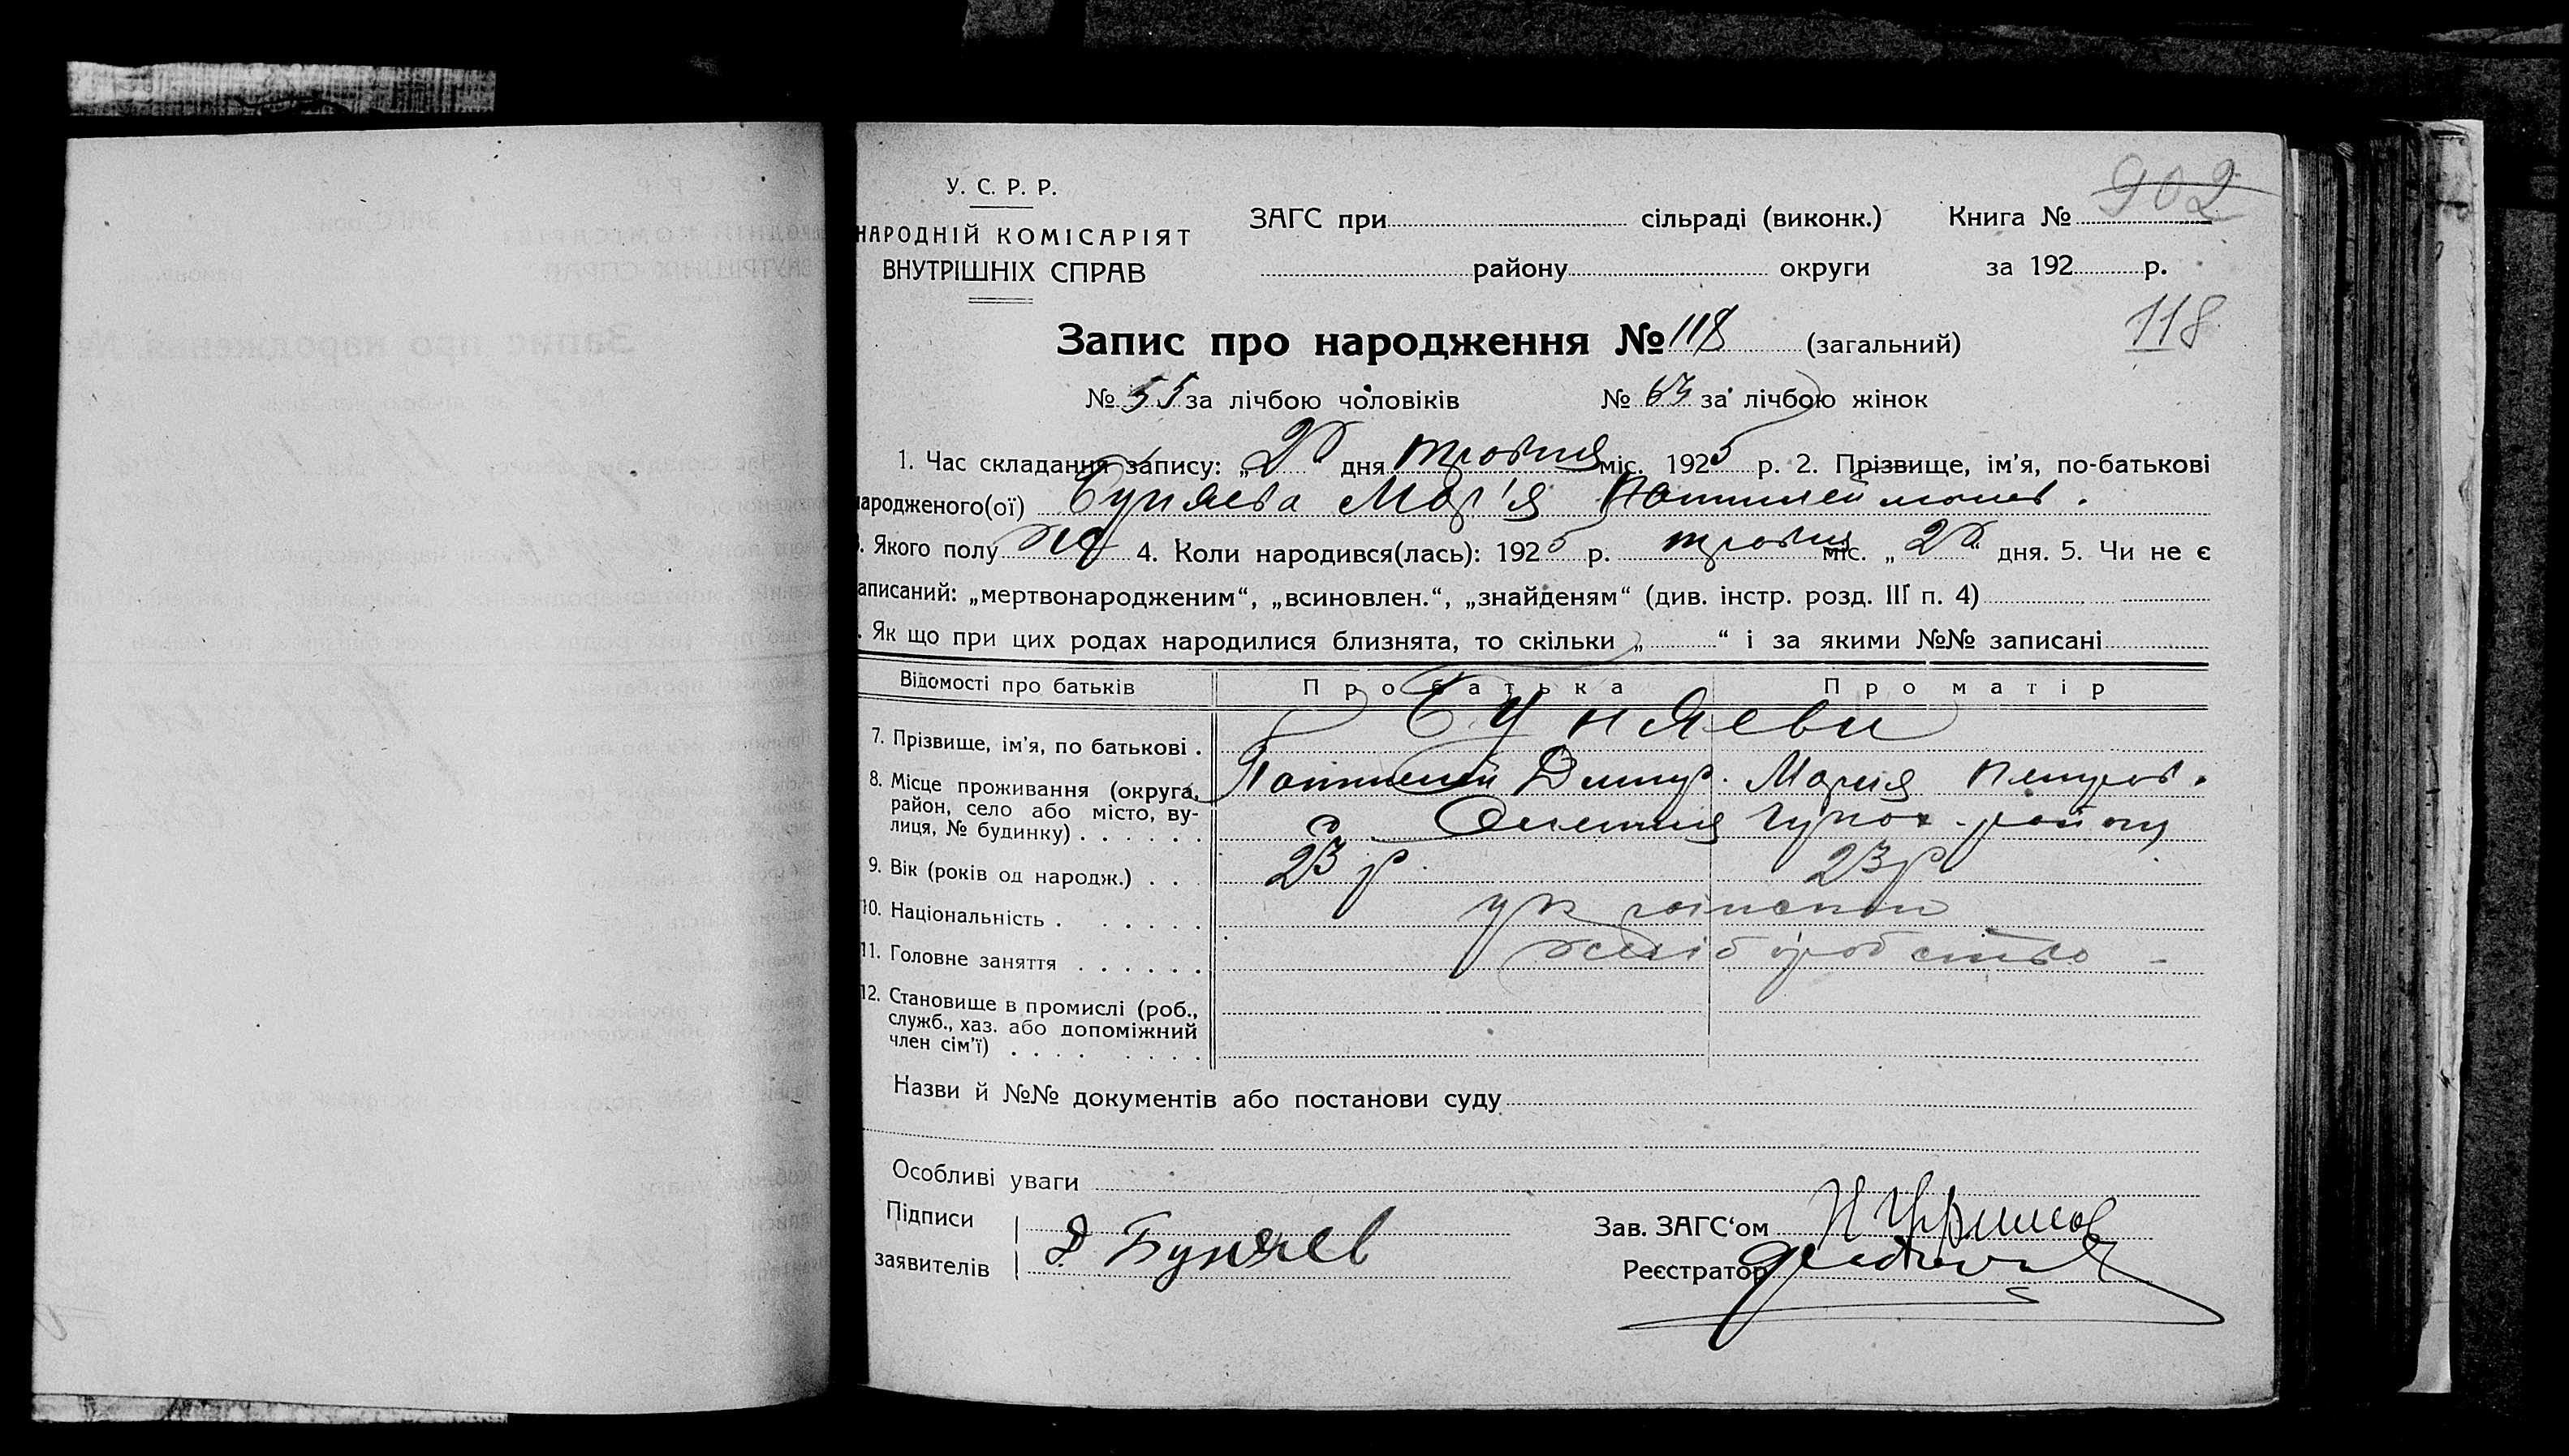 902
У. С. Р. Р.
НАРОДНІЙ КОМІСАРІЯТ
ВНУТРІШНІХ СПРАВ
ЗАГС при сільраді (виконк.) Книга №
району округи за 192 р.
118
Запис про народження № 118 (загальний)
№ 55 за лічбою чоловіків № 63 за лічбою жінок
1. Час складання запису: „ “ дня травня міс. 1925 р. 2. Прізвище, ім’я, по-батькові
народженого(ої) Буняева Мар'я
. Якого полу жін 4. Коли народився(лась): 1925 р. травня міс. „ “ дня. 5. Чи не є
аписаний: „мертвонародженим“, „всиновлен.“, „знайденям“ (див. інстр. розд. III п. 4)
. Як що при цих родах народилися близнята, то скільки „ “ і за якими №№ записані
Відомості про батьків Про батька Про матір
7. Прізвище, ім’я, по батькові . Буняеви
Дмитр. Мария Петров.
8. Місце проживання (округа, район, село або місто, вулиця, № будинку) . . . . . . С. району
9. Вік (років од народж.) . . . 23 р. 23 р
10. Національність . . . . . . українськи
11. Головне заняття . . . . . . хліборобство -
12. Становище в промислі (роб., служб., хаз. або допоміжний член сім’ї) . . . . . . . .
Назви й №№ документів або постанови суду
Особливі уваги
Підписи
заявителів Буняев
Зав. ЗАГС‘ом
Реєстратор